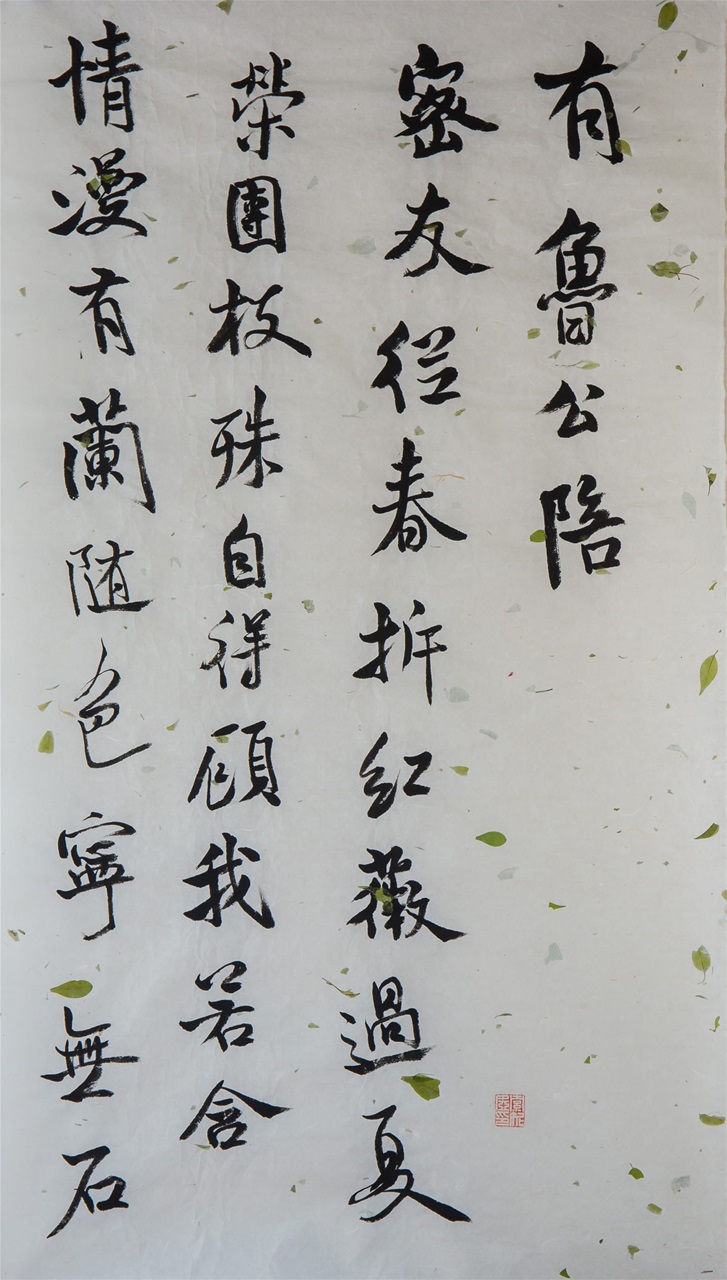 有魯公陪
密友從春拆紅薇過夏
榮團枝殊自得顧我若含
情漫有蘭随色寧無石